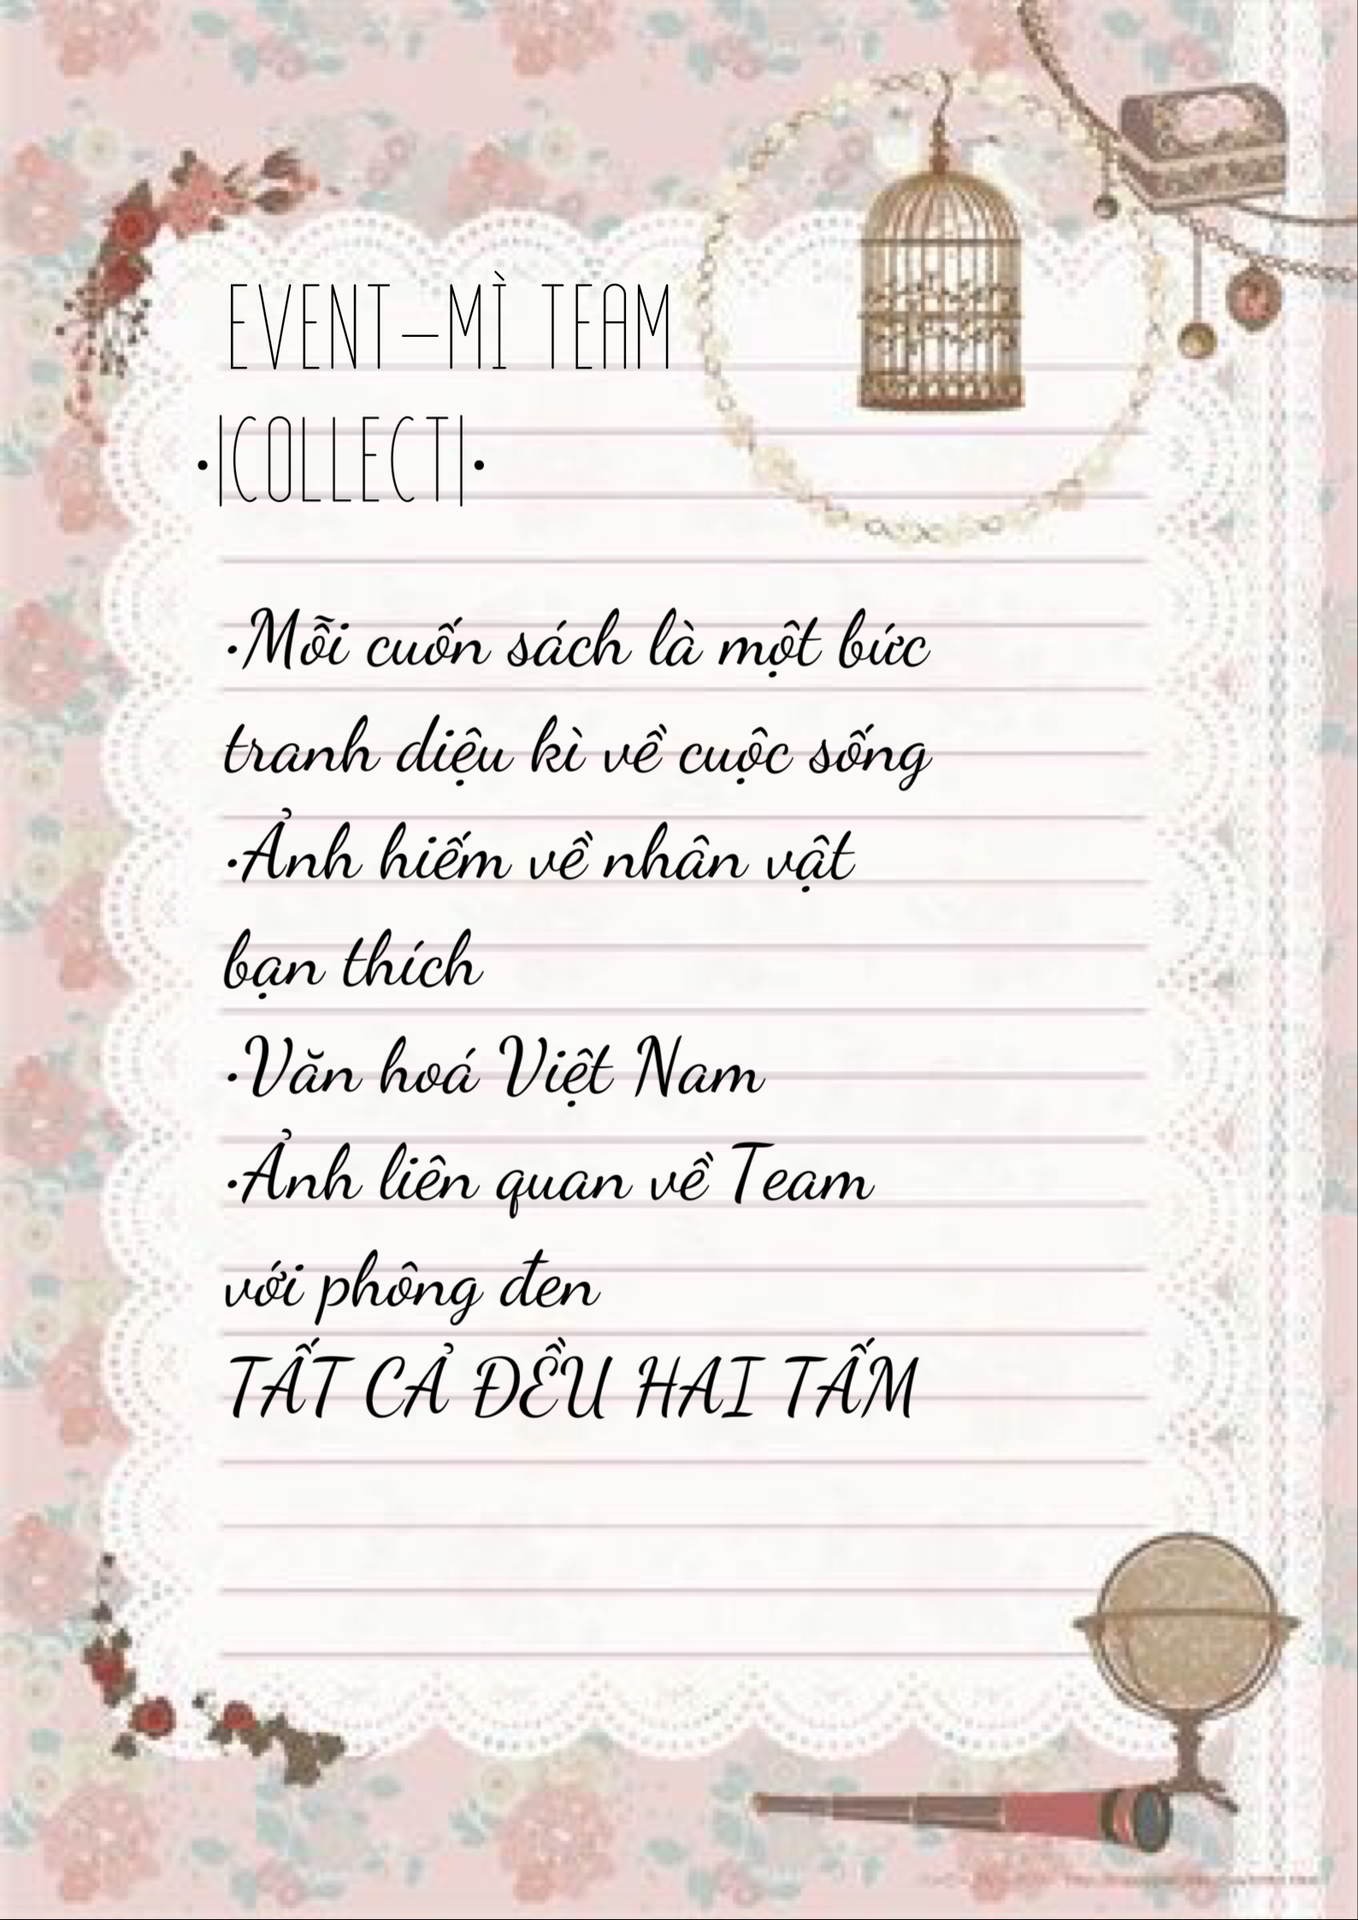 EVENT-MÌ TEAM
•|COLLECT|•
•Mỗi cuốn sách là một bức
tranh diệu kì về cuộc sống
•Ảnh hiếm về nhân vật
bạn thích
•Văn hoá Việt Nam
•Ảnh liên quan về Team
với phông đen
TẤT CẢ ĐỀU HAI TẤM